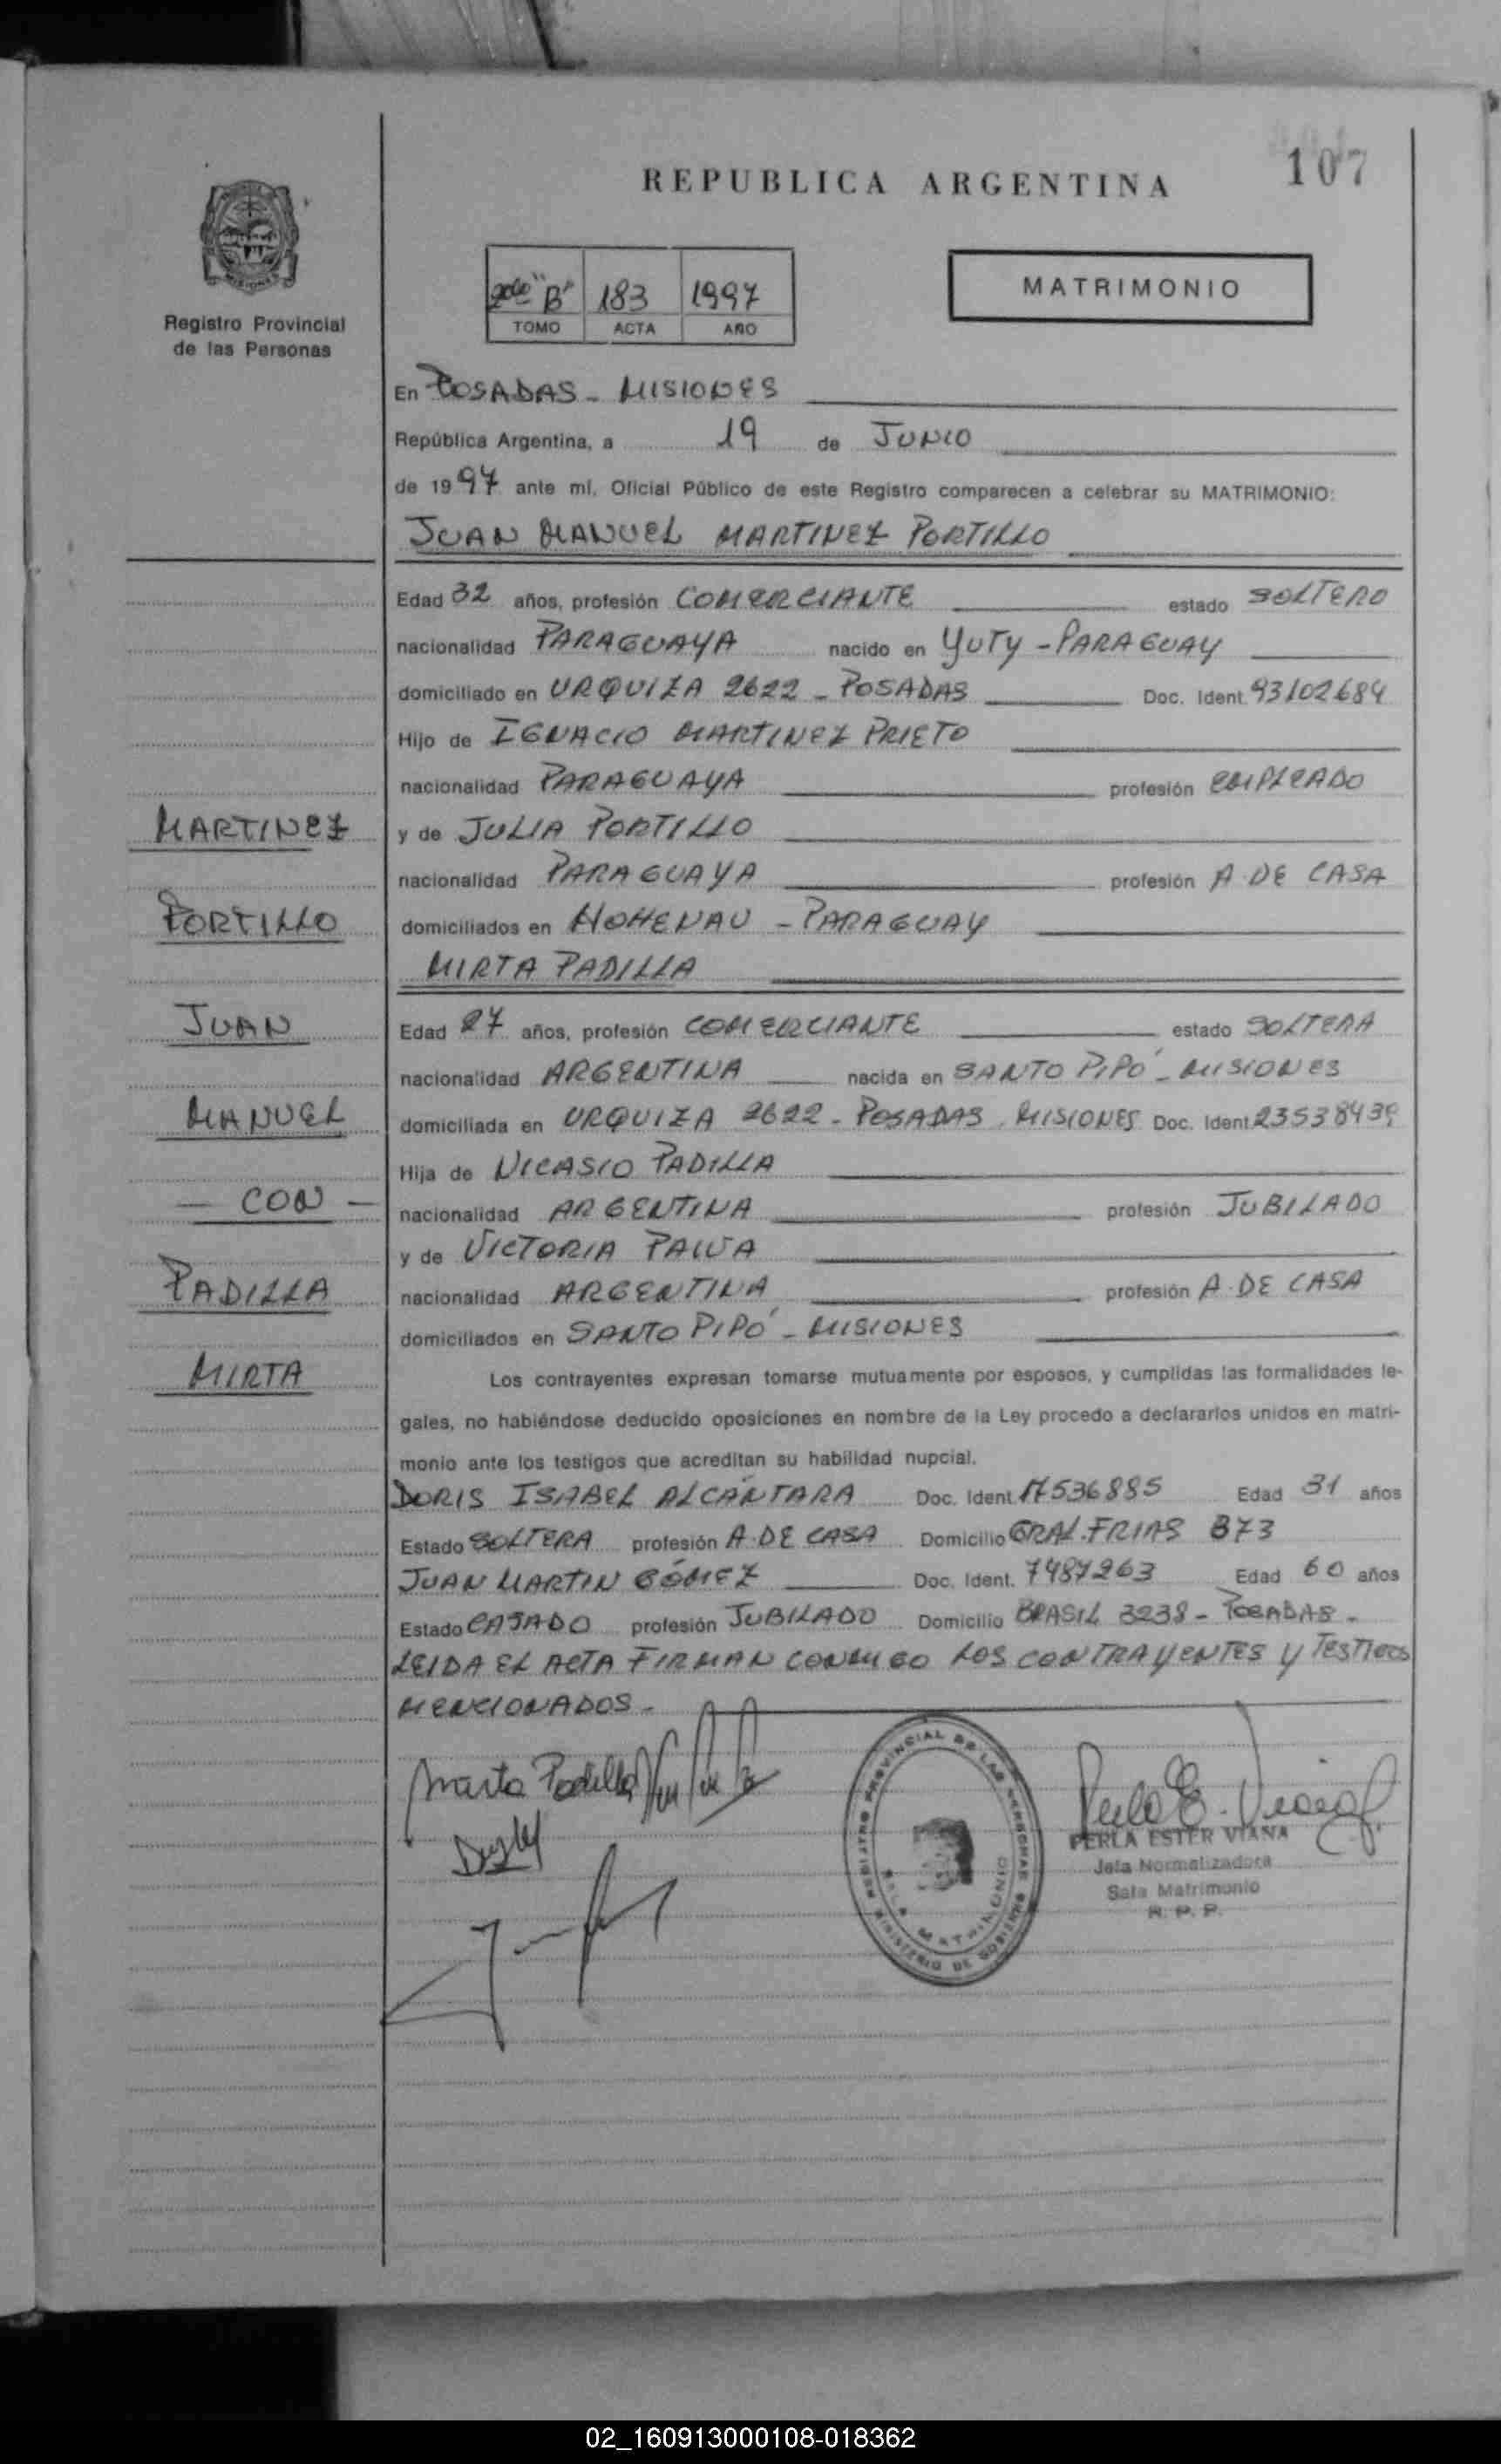 107
REPUBLICA ARGENTINA
Registro Provincial
de las Personas
"B" 183 1997
TOMO ACTA AÑO
MATRIMONIO
En POSADAS - MISIONES
República Argentina, a 19 de JUNIO
de 1997 ante mí, Oficial Público de este Registro comparecen a celebrar su MATRIMONIO:
JUAN MANUEL MARTINEZ PORTILLO
Edad 32 años, profesión COMERCIANTE estado SOLTERO
nacionalidad PARAGUAYA nacido en YUTY - PARAGUAY
domiciliado en URQUIZA 2622 - POSADAS Doc. Ident. 93102684
Hijo de IGNACIO MARTINEZ PRIETO
nacionalidad PARAGUAYA profesión EMPLEADO
MARTINEZ
y de JULIA PORTILLO
nacionalidad PARAGUAYA profesión A. DE CASA
PORTILLO
domiciliados en HOHENAU - PARAGUAY
MIRTA PADILLA
JUAN
Edad 27 años, profesión COMERCIANTE estado SOLTERA
nacionalidad ARGENTINA nacida en SANTO PIPÓ - MISIONES
MANUEL
domiciliada en URQUIZA 2622 - POSADAS. MISIONES Doc. Ident. 23538439
Hija de NICASIO PADILLA
- CON -
nacionalidad ARGENTINA profesión JUBILADO
y de VICTORIA PAIVA
PADILLA
nacionalidad ARGENTINA profesión A. DE CASA
domiciliados en SANTO PIPÓ - MISIONES
MIRTA
Los contrayentes expresan tomarse mutuamente por esposos, y cumplidas las formalidades le-
gales, no habiéndose deducido oposiciones en nombre de la Ley procedo a declararlos unidos en matri-
monio ante los testigos que acreditan su habilidad nupcial.
DORIS ISABEL ALCÁNTARA Doc. Ident. 17536885 Edad 31 años
Estado SOLTERA profesión A. DE CASA Domicilio GRAL. FRIAS 873
JUAN MARTIN GÓMEZ Doc. Ident. 7487263 Edad 60 años
Estado CASADO profesión JUBILADO Domicilio BRASIL 3238 - POSADAS -
LEIDA EL ACTA FIRMAN CONMIGO LOS CONTRAYENTES Y TESTIGOS
MENCIONADOS -
Mirta Padilla
REGISTRO PROVINCIAL DE LAS PERSONAS
MINISTERIO DE GOBIERNO
SALA MATRIMONIO
Perla E. Viana
PERLA ESTER VIANA
Jefa Normalizadora
Sala Matrimonio
R. P. P.
02_160913000108-018362